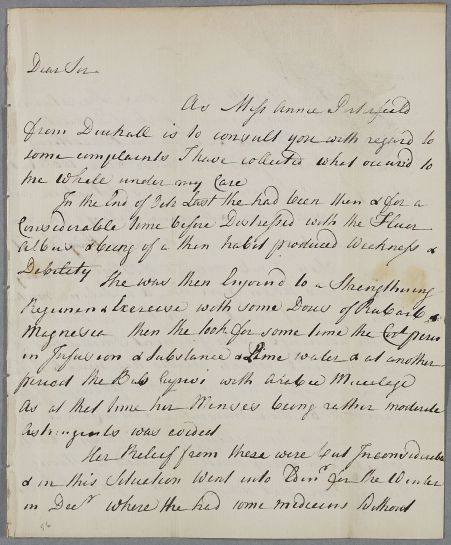 Dear Sir
As Miss Annie Porterfield
from Duchall is to consult you with regard to
some complaints I have collected what occured to
me while under my Care
In the End of Feb Last she had been then & for a
Considerable time before Distressed with the Fluor
Albus & being of a thin habit produced Weekness &
Debility She was then Enjoind to a Strengthning
Regimen & Exercise with some Doses of Rubarb &
Magnesia then she took for some time the Cort peruv
in Infusion & Substance & Lime water & at another
period the Bals Capivi with Arabic Mucilage
As at that time her Menses being rather moderate
astringents was evited
Her Relief from these were but Inconsiderable
& in this Situation went into Edinr for the Winter
in Decr where she had some medicines Without